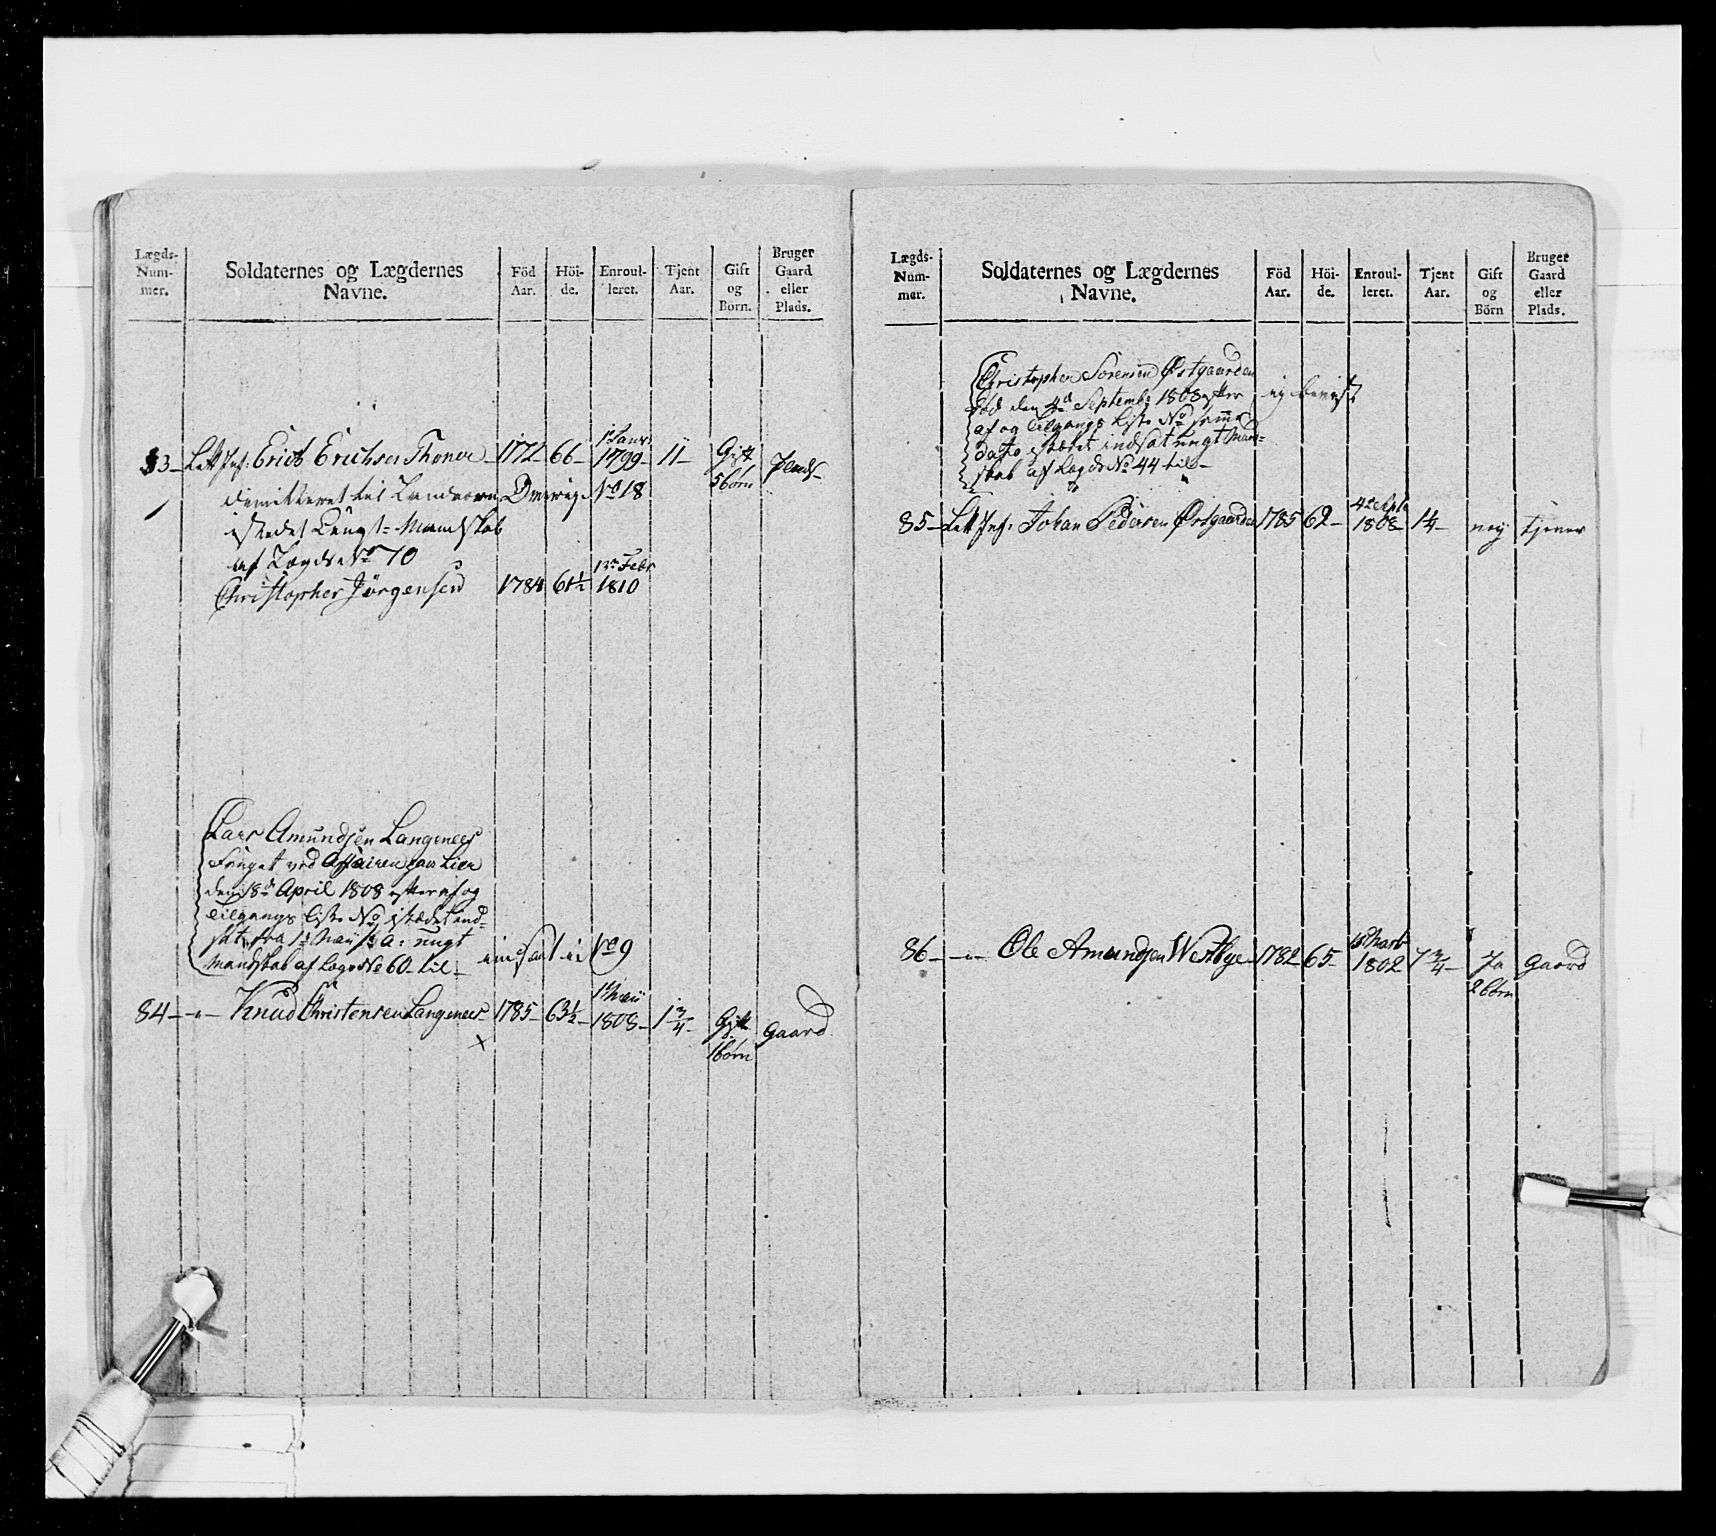 Lægds-Num-mer. Soldaternes og Lægdernes Navne. Föd Aar. Höi-de. Enroul-leret. Tjent Aar. Gift og Börn. Bruger Gaard eller Plads.
1 Janr:
83 – Lett Inf: Erich Erichsen Thoner – 1772 – 66 – 1799 – 11 – Gift 5 börn Plads –
dimitteret til Landværn No 18
istedet Mandskab
af Lægds No 70
13de Febr
Christopher Jörgensen 1784 61½ 1810
Lars Amundsen Langenees
Fanget ved Affairen paa Lier
den 18de April 1808 efter af og
Tilgangs Liste No istædet ind-
sat fra 1te Maii s: A: ungt
Mandskab af Lægd No 60 – til – No 9
1te Maii
84 – „ – Knud Christensen Langenees – 1785 – 63½ – 1808 – 1¾ – Gift 1 börn Gaard
Lægds-Num-mer. Soldaternes og Lægdernes Navne. Föd Aar. Höi-de. Enroul-leret. Tjent Aar. Gift og Börn Bruger Gaard eller Plads.
Christopher Sörensen Østgaarden
död den 4de Septembr 1808 efter
af og Tilgangs Liste No samme
dato istædet indsat ungt Mand-
skab af Lægds No 44 til –
4de Septr
85 – Lett Inf: Johan Pedersen Østgaarden 1785 62 – 1808 1¼ – ney tjener
86 – „ – Ole Amundsen Westbye – 1782 – 65 – Marts 1802 7¾ – Ja 2 börn Gaard